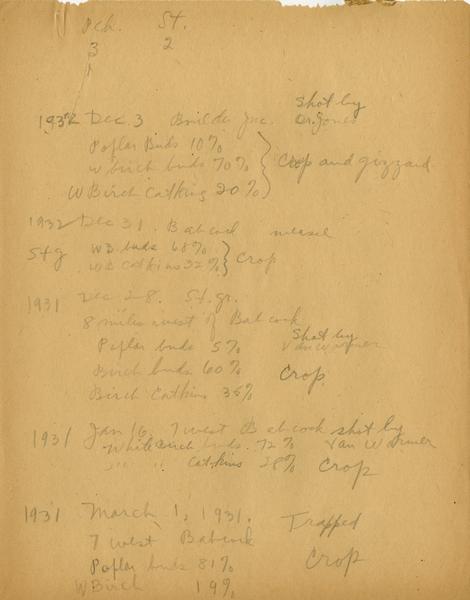 Pch. St.
3 2
1
1932 Dec. 3 Shot by
Dr. Jones
Poplar Buds 10%
W birch buds 70% Crop and gizzard
W Birch Catkins 20%
1932 Dec 31. Babcock
Stg WB buds 68% Crop
WB Catkins 32%
1931 Dec 28. St. gr.
8 miles west of Babcock
Poplar buds 5% Shot by
Van Wormer
Birch buds 60% Crop.
Birch Catkins 35%
1931 Jan 16, 7 west Babcock shot by
White Birch buds. 72% Van Wormer
" " Catkins 28% Crop
1931 March 1, 1931. Trapped
7 west Babcock
Poplar buds 81% Crop
W Birch 19%